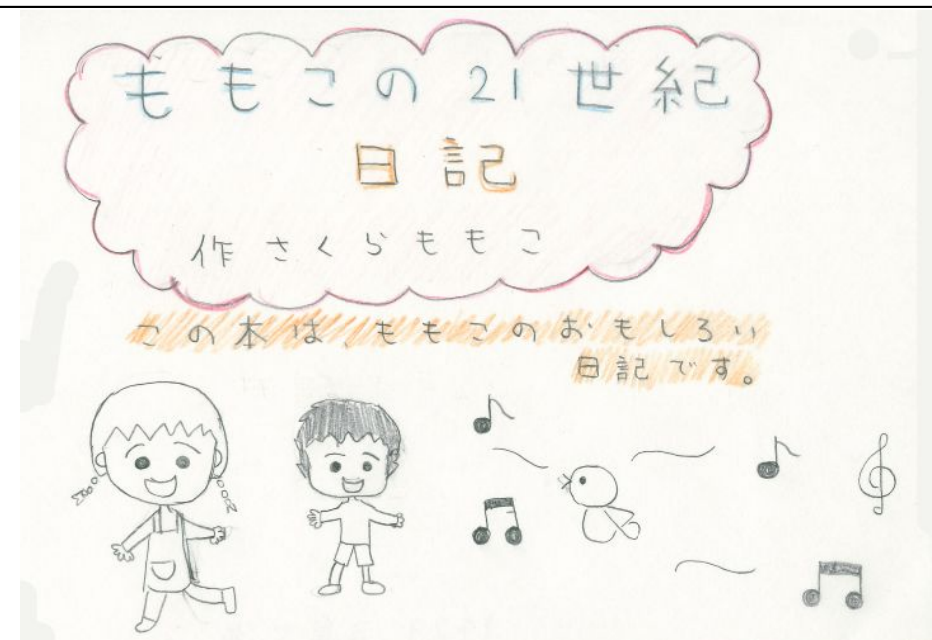 ももこの21世紀
日記
作さくらももこ
この本は、ももこのおもしろい
日記です。